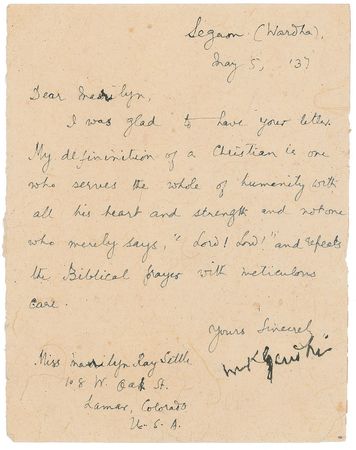 Segaon (Wardha),
May 5, '37
Dear Marilyn,
I was glad to have your letter.
My defininition of a Christian is one
who serves the whole of humanity with
all his heart and strength and not one
who merely says, "Lord! Lord!" and repeats
the Biblical prayer with meticulous
care.
Yours Sincerely
MKGandhi
Miss Marilyn Ray Settle
108 W. Oak St.
Lamar, Colorado
U. S. A.